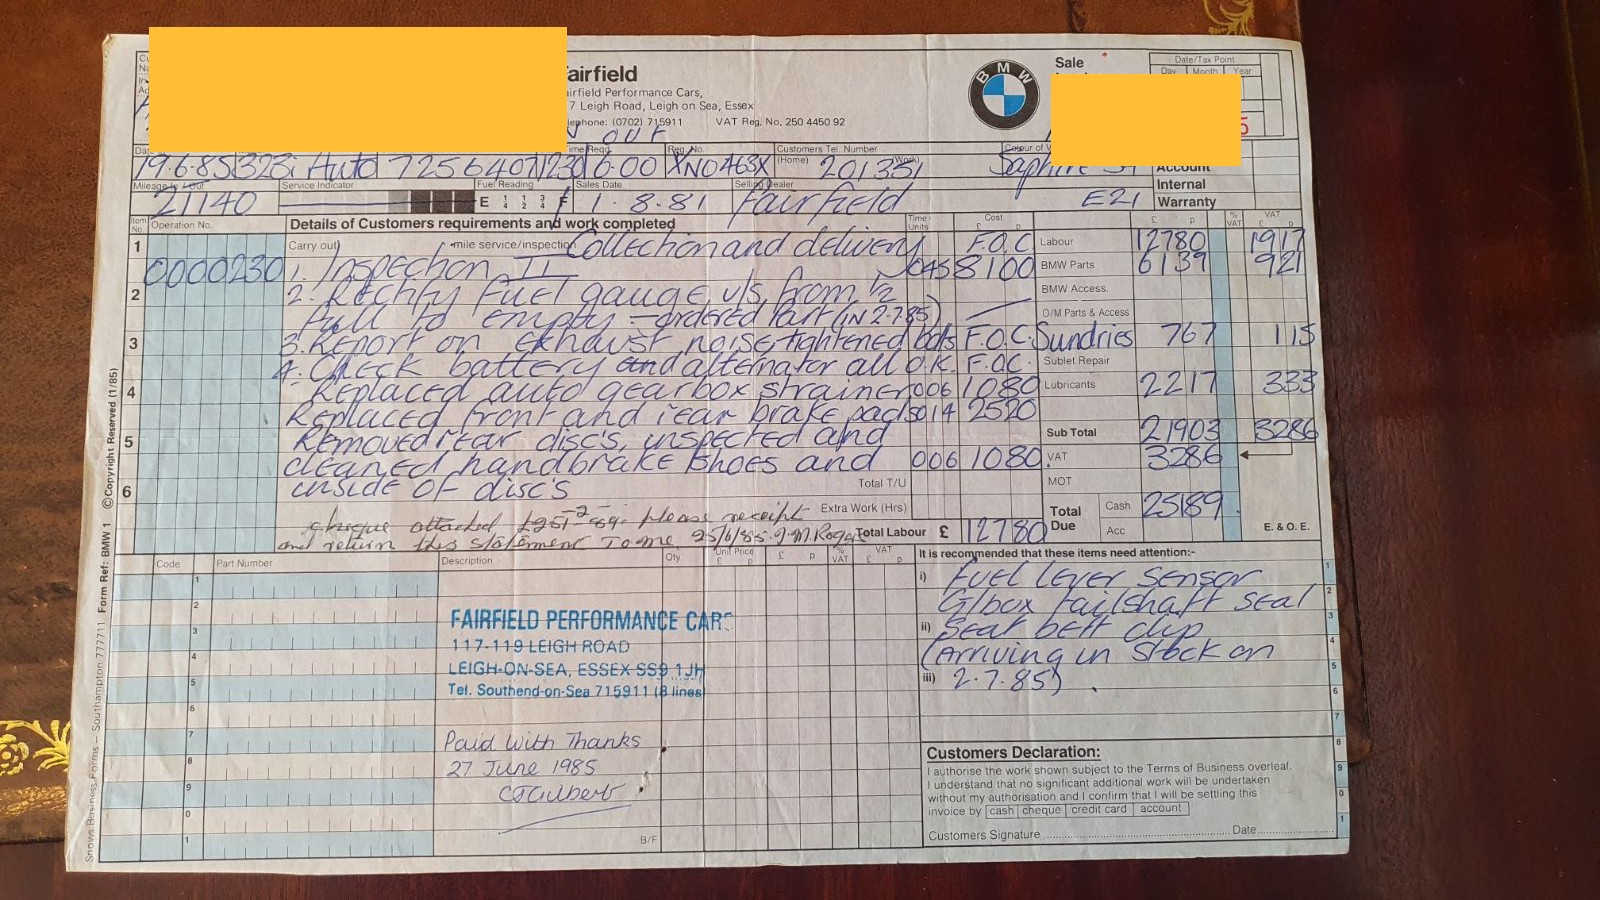 Fairfield
Fairfield Performance Cars,
7 Leigh Road, Leigh on Sea, Essex
Telephone: (0702) 715911 VAT Reg. No. 250 4450 92
OUT
BMW
Sale
Date/Tax Point
Day Month Year
5
Reg. No. Customers Tel. Number
(Home) (Work)
19.6.85 323i Auto 7256407 1230 6.00 XNO463X 201351 Saphire
Account
Internal
Warranty
Mileage In Out Service Indicator Fuel Reading Sales Date Selling Dealer
21140 E 1/4 1/2 3/4 F 1.8.81 Fairfield E21
Item No. Operation No. Details of Customers requirements and work completed Time Units Cost £ p % VAT VAT £ p
1 Carry out mile service/inspection Collection and delivery F.O.C Labour 12780 1917
0000230 1. Inspection II 045 8100 BMW Parts 6139 921
2 2. Rectify Fuel gauge u/s, from 1/2 BMW Access.
full to empty - ordered Part (IN 2.7.85) O/M Parts & Access
3 3. Report on exhaust noise, tightened bolts F.O.C. Sundries 767 115
4. Check battery and alternator all O.K. F.O.C. Sublet Repair
4 Replaced auto gearbox strainer 006 1080 Lubricants 2217 333
Replaced front and rear brake pads 014 2520
5 Removed rear disc's, inspected and Sub Total 21903 3286
cleaned handbrake shoes and 006 1080 VAT 3286
6 inside of disc's Total T/U MOT
Extra Work (Hrs) Total Due Cash 25189
cheque attached £251-89. Please receipt
and return this statement to me 25/6/85. Total Labour £ 12780 Acc E. & O. E.
Code Part Number Description Qty Unit Price £ p £ p % VAT VAT £ p
It is recommended that these items need attention:-
i) Fuel lever sensor
G/box tailshaft seal
ii) Seat belt clip
(Arriving in Stock on
iii) 2.7.85)
1
2
3
4
5
6
7
8
9
0
1
FAIRFIELD PERFORMANCE CARS
117-119 LEIGH ROAD
LEIGH-ON-SEA, ESSEX SS9 1JH
Tel. Southend-on-Sea 715911 (8 lines)
Paid With Thanks
27 June 1985
B/F
1
2
3
4
5
6
7
8
9
0
1
Customers Declaration:
I authorise the work shown subject to the Terms of Business overleaf.
I understand that no significant additional work will be undertaken
without my authorisation and I confirm that I will be settling this
invoice by cash cheque credit card account
Customers Signature Date
Snows Business Forms – Southampton 777711 Form Ref: BMW 1 © Copyright Reserved (1/85)